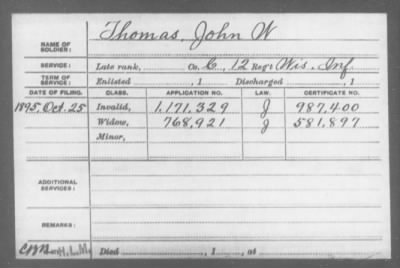 NAME OF SOLDIER: Thomas, John W
SERVICE: Late rank, Co. C, 12 Reg't Wis. Inf
TERM OF SERVICE: Enlisted , 1 Discharged , 1
DATE OF FILING. CLASS. APPLICATION NO. LAW. CERTIFICATE NO.
1895, Oct. 25 Invalid, 1,171,329 J 987,400
Widow, 768,921 J 581,897
Minor,
ADDITIONAL SERVICES:
REMARKS:
H.L.M. Died , 1 , at